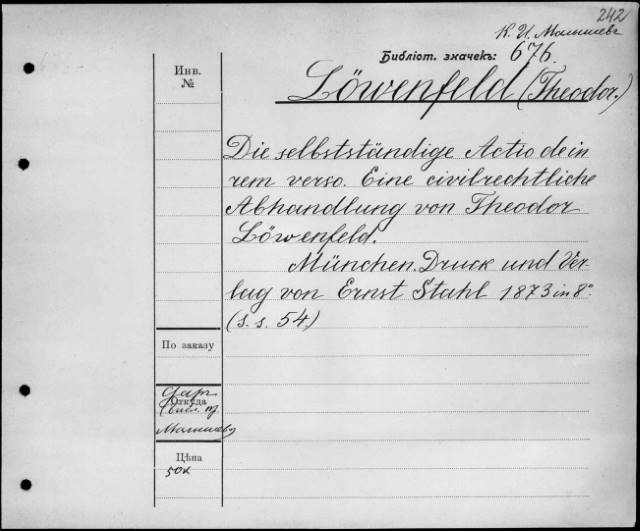 242
К. И. Малышевъ
Библіот. значекъ: 676.
Инв.
№
Löwenfeld (Theodor.)
Die selbstständige Actio de in
rem verso. Eine civilrechtliche
Abhandlung von Theodor
Löwenfeld.
München. Druck und Ver
lag von Ernst Stahl 1873 in 8°
(s. s. 54)
По заказу
Даръ
Откуда
Малышева
Цѣна
50к